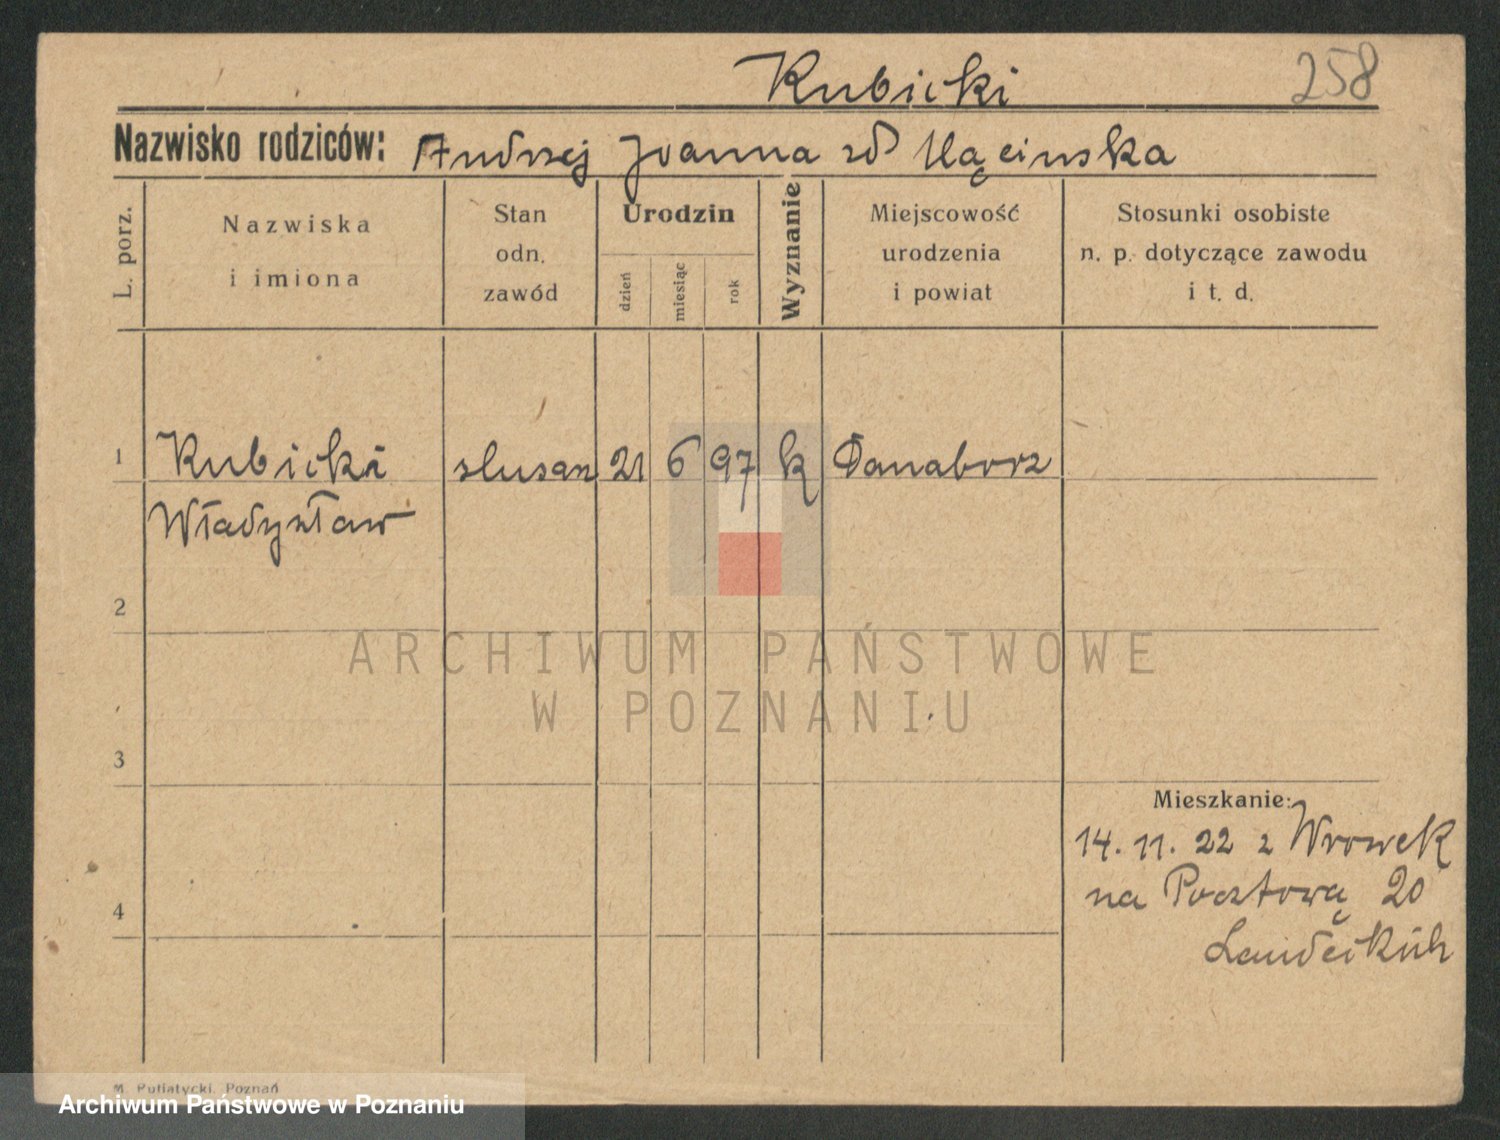 Kubicki 258
Nazwisko rodziców: Andrzej Joanna zd
L. porz.
Nazwiska
i imiona
Stan
odn.
zawód
Urodzin
dzień
miesiąc
rok
Wyznanie
Miejscowość
urodzenia
i powiat
Stosunki osobiste
n. p. dotyczące zawodu
i t. d.
1 Kubicki slusarz 21 6 97 k Danaborz
Władysław
2
ARCHIWUM PAŃSTWOWE
W POZNANIU
3
Mieszkanie:
14. 11. 22 z
na Pocztową 20
4
M. Putiatycki, Poznań
Archiwum Państwowe w Poznaniu